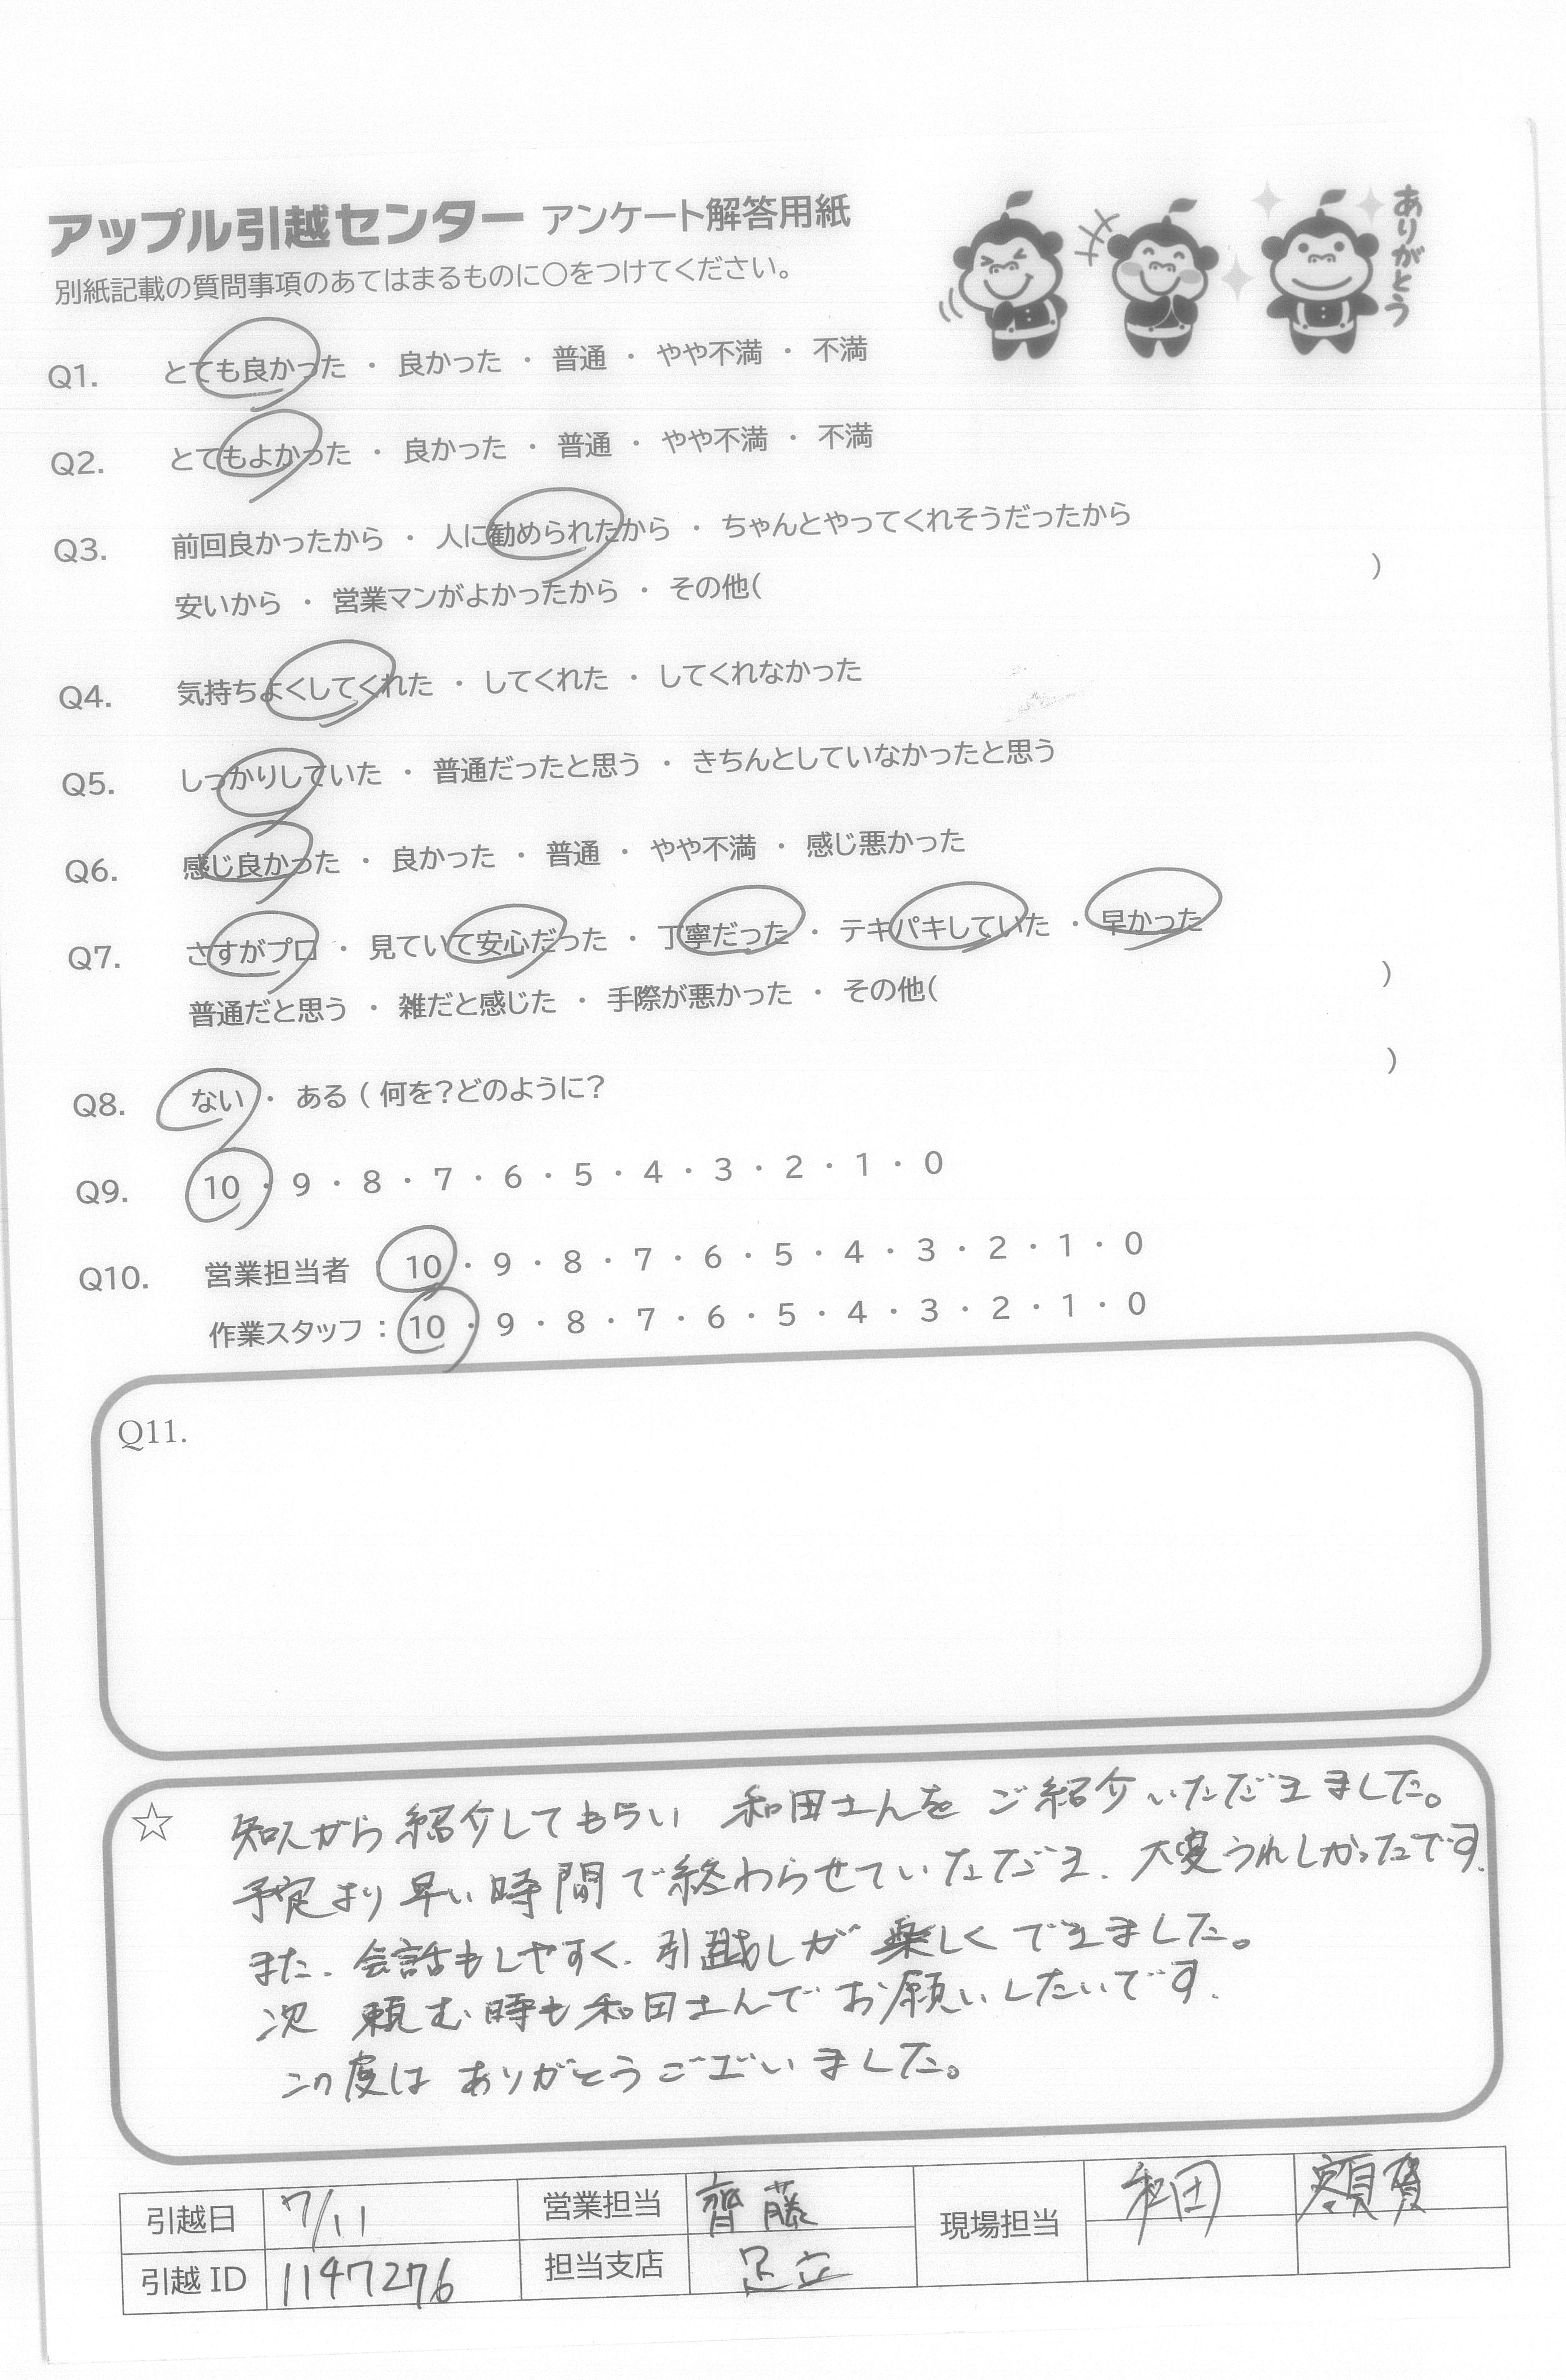 アップル引越センター アンケート解答用紙
ありがとう
別紙記載の質問事項のあてはまるものに〇をつけてください。
Q1. とても良かった ・ 良かった ・ 普通 ・ やや不満 ・ 不満
Q2. とてもよかった ・ 良かった ・ 普通 ・ やや不満 ・ 不満
Q3. 前回良かったから ・ 人に勧められたから ・ ちゃんとやってくれそうだったから
安いから ・ 営業マンがよかったから ・ その他( )
Q4. 気持ちよくしてくれた ・ してくれた ・ してくれなかった
Q5. しっかりしていた ・ 普通だったと思う ・ きちんとしていなかったと思う
Q6. 感じ良かった ・ 良かった ・ 普通 ・ やや不満 ・ 感じ悪かった
Q7. さすがプロ ・ 見ていて安心だった ・ 丁寧だった ・ テキパキしていた ・ 早かった
普通だと思う ・ 雑だと感じた ・ 手際が悪かった ・ その他( )
Q8. ない ・ ある ( 何を?どのように? )
Q9. 10 ・ 9 ・ 8 ・ 7 ・ 6 ・ 5 ・ 4 ・ 3 ・ 2 ・ 1 ・ 0
Q10. 営業担当者 : 10 ・ 9 ・ 8 ・ 7 ・ 6 ・ 5 ・ 4 ・ 3 ・ 2 ・ 1 ・ 0
作業スタッフ : 10 ・ 9 ・ 8 ・ 7 ・ 6 ・ 5 ・ 4 ・ 3 ・ 2 ・ 1 ・ 0
Q11.
☆ 知人から紹介してもらい 和田さんを ご紹介いただきました。
予定より早い時間で終わらせていただき、大変うれしかったです。
また、会話もしやすく、引越しが楽しくできました。
次 頼む時も和田さんでお願いしたいです。
この度は ありがとうございました。
引越日 7/11 営業担当 齊藤 現場担当 和田 額賀
引越ID 1147276 担当支店 足立